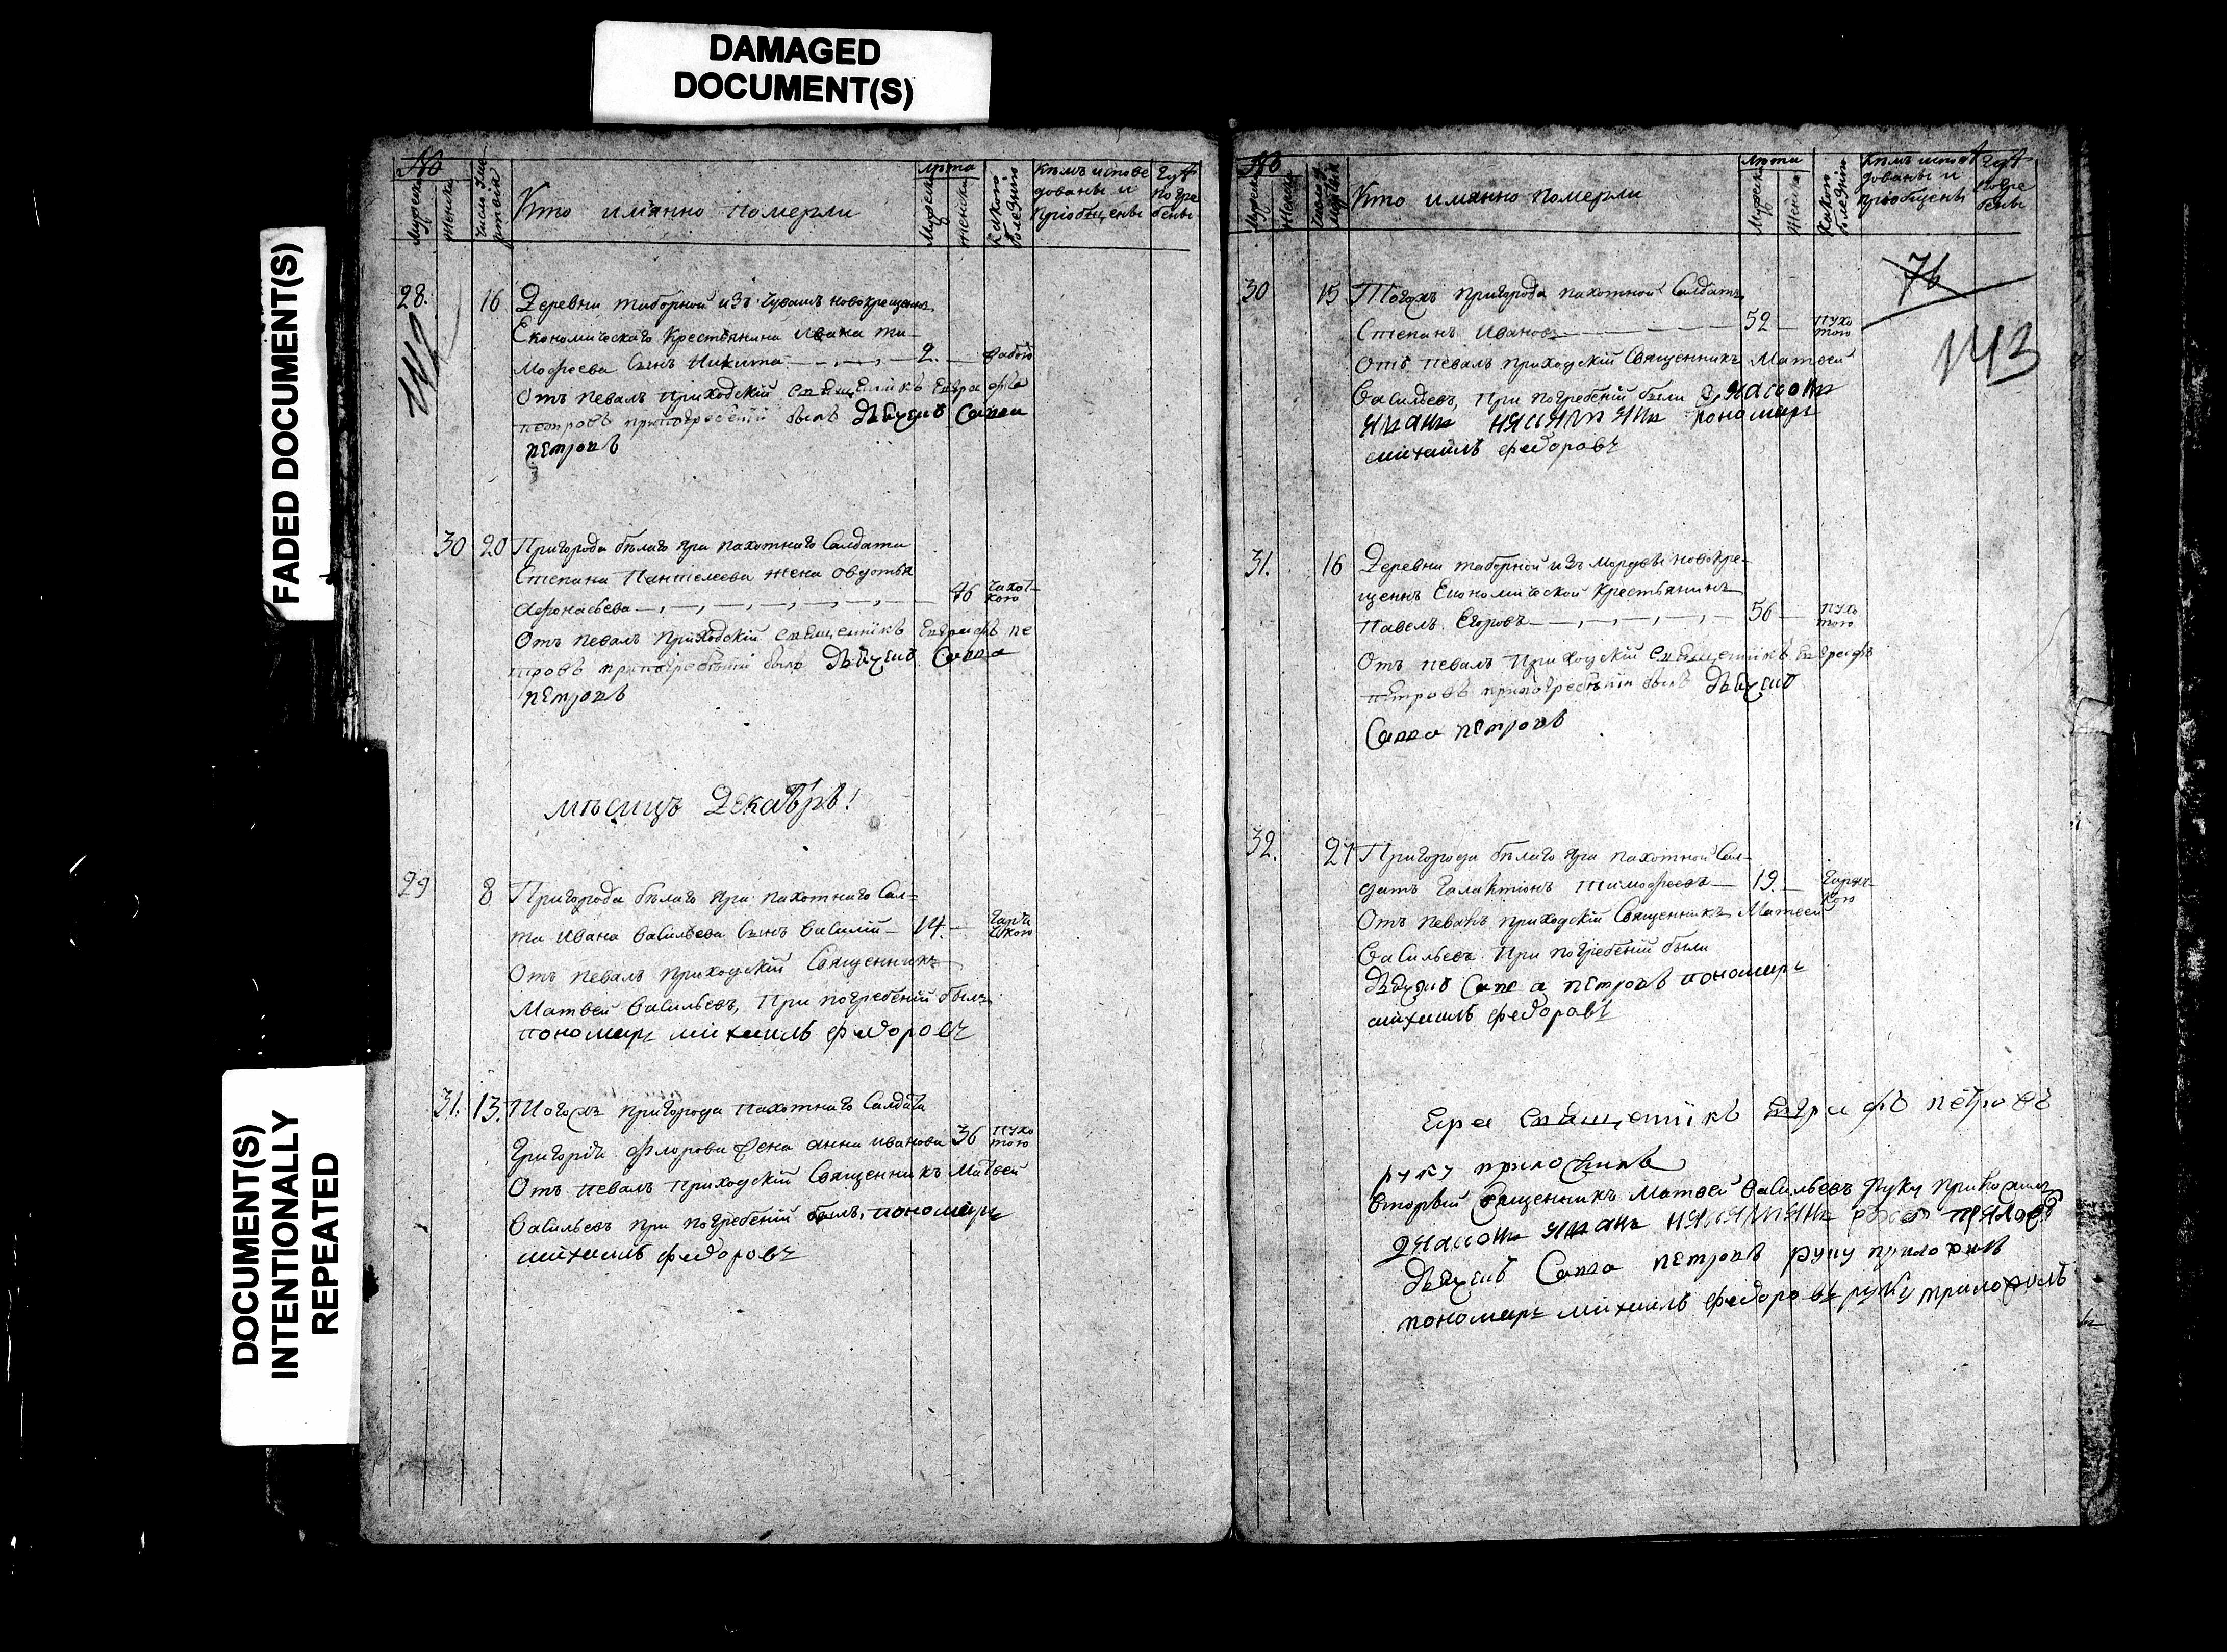 DAMAGED
DOCUMENT(S)
FADED DOCUMENT(S)
DOCUMENT(S)
INTENTIONALLY
REPEATED
№
Мужеска
Женска
Число
Кто имянно померли
лѣта
Мужеска
женска
Какою болезнію
Кѣмъ испове
дованы и
пріобщены
Гдѣ
погре
бены
28.
16
Деревни таборной изъ Чувашъ новокрещенъ
Економическаго Крестьянина Ивана ти-
мофеева Сынъ Никита
2.
Отъ певалъ приходскій священникъ Евграфъ
петровъ припогребеніи былъ дьячекъ Савва
петровъ
30 20 Пригорода бѣлаго Яра пахотнаго Салдата
Степана Пантелеева жена Овдотья
Афонасьева
76
чахот-
кою
Отъ певалъ приходскій священникъ Евграфъ пе
тровъ припогребеніи былъ дьячекъ Савва
петровъ
мѣсяцъ Декабрь!
29 8 Пригорода бѣлаго Яра пахотнаго Сал=
та Ивана Васильева Сынъ Василій 14.
Отъ певалъ приходскій Священникъ
Матвей Васильевъ, При погребеніи былъ
пономарь михаилъ федоровъ
31. 13. Тогожъ пригорода пахотнаго Салдата
Григорія Флорова жена анна иванова 36
пухо
тою
Отъ певалъ приходскій Священникъ Матвей
Васильевъ при погребеніи былъ, пономарь
михаилъ федоровъ
№
Мужеска
Женска
Кто имянно померли
лѣта
Мужеска
Женска
Какою болезнію
Кѣмъ испов
дованы и
пріобщены
Гдѣ
погре
бены
76
143
30 15 Тогожъ пригорода пахотной Салдатъ
Степанъ Ивановъ 52
пухо
тою
Отъ певалъ приходскій Священникъ Матвей
Васильевъ, При погребеніи были диаконъ
пономарь
михаилъ федоровъ
31. 16 Деревни таборной изъ мордвы новокре-
щенъ Економической Крестьянинъ
Павелъ Егоровъ 56
пухо
тою
Отъ певалъ приходскій священникъ Евграфъ
петровъ припогребеніи былъ дьячекъ
Савва петровъ
32. 27 Пригорода бѣлаго Яра пахотной Сал-
датъ Галактіонъ Тимофеевъ 19.
Отъ певалъ приходскій Священникъ Матвей
Васильевъ При погребеніи были
дьячекъ Савва петровъ пономарь
михаилъ федоровъ
священникъ Евграфъ петровъ
руку приложилъ
Вторый Священникъ Матвей Васильевъ Руку приложилъ
дьячекъ Савва петровъ руку приложилъ
пономарь михаилъ федоровъ руку приложилъ